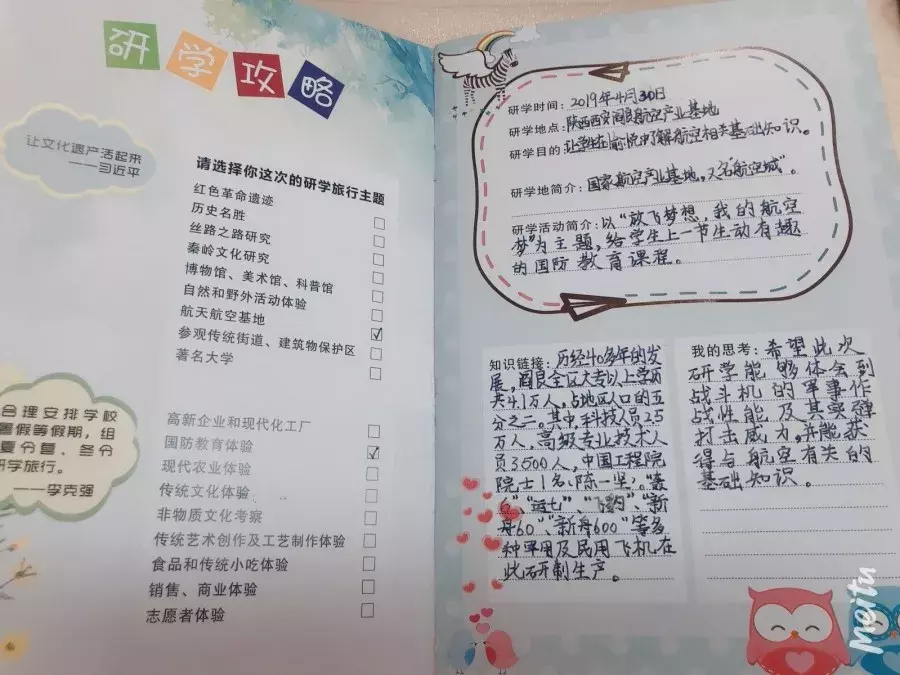 研学攻略
让文化遗产活起来
——习近平
请选择你这次的研学旅行主题
红色革命遗迹
历史名胜
丝路之路研究
秦岭文化研究
博物馆、美术馆、科普馆
自然和野外活动体验
航天航空基地
参观传统街道、建筑物保护区
著名大学
高新企业和现代化工厂
国防教育体验
现代农业体验
传统文化体验
非物质文化考察
传统艺术创作及工艺制作体验
食品和传统小吃体验
销售、商业体验
志愿者体验
合理安排学校
暑假等假期，组
夏令营、冬令
研学旅行。
——李克强
研学时间：2019年4月30日
研学地点：陕西西安阎良航空产业基地
研学目的：让学生在愉悦中了解航空相关基础知识。
研学地简介：国家航空产业基地，又名“航空城”。
研学活动简介：以“放飞梦想，我的航空
梦”为主题，给学生上一节生动有趣
的国防教育课程。
知识链接：历经40多年的发
展，阎良全区大专以上学历
共4.1万人，占地区人口的五
分之二。其中，科技人员2.5
万人，高级专业技术人
员3500人，中国工程院
院士1名（陈一坚）。“轰
六”、“运七”、“飞豹”、“新
舟60”“新舟600”等多
种军用及民用飞机在
此研制生产。
我的思考：希望此次
研学能够体会到
战斗机的军事作
战性能及其实弹
打击威力，并能获
得与航空有关的
基础知识。
Meitu